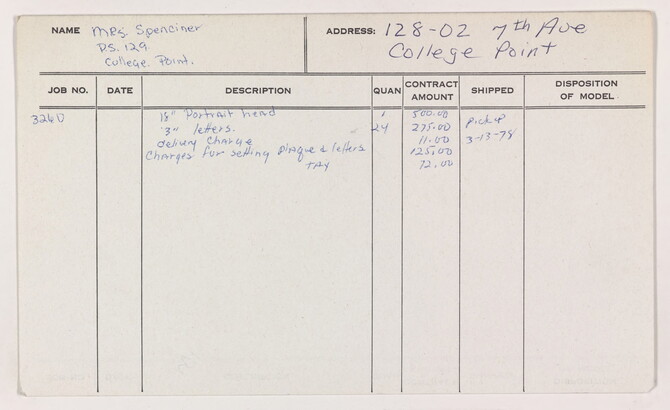 NAME Mrs. Spenciner
P.S. 129
College Point.
ADDRESS: 128-02 7th Ave
College Point
JOB NO. DATE DESCRIPTION QUAN CONTRACT AMOUNT SHIPPED DISPOSITION OF MODEL
326D 18" Portrait head 1 500.00 Pick up
"3" letters. 24 275.00 3-13-78
delivery Charge 11.00
Charges for setting plaque & letters 125.00
TAX 72.00